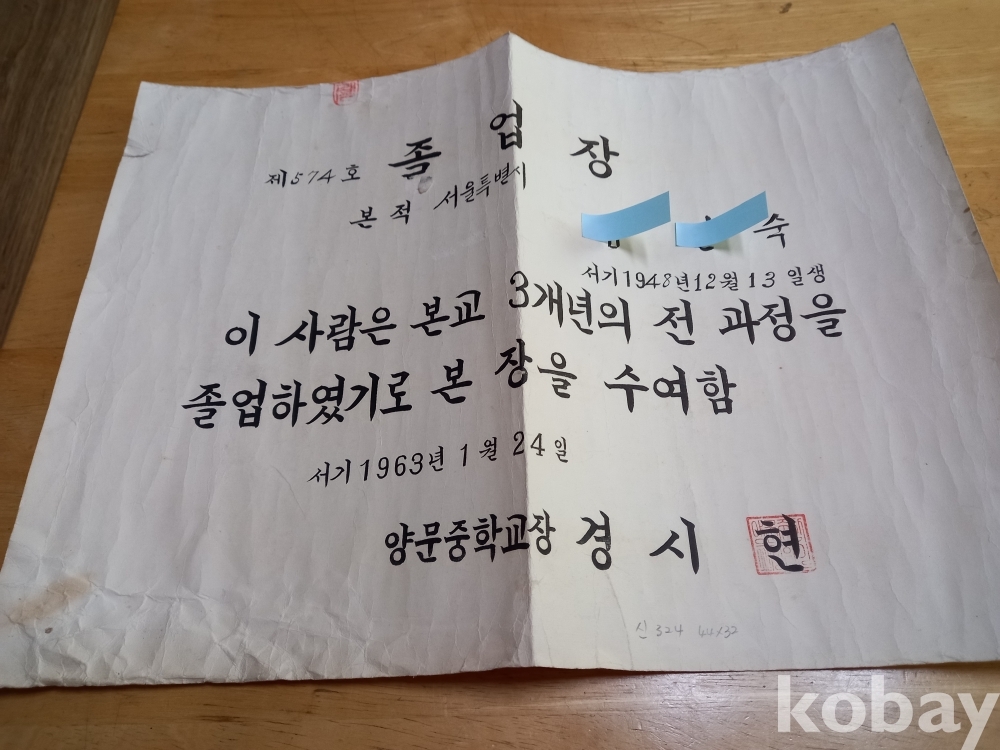 졸업장
제574호
본적 서울특별시
숙
서기1948년12월13일생
이 사람은 본교 3개년의 전 과정을
졸업하였기로 본 장을 수여함
서기1963년1월24일
양문중학교장 경시현
신 324 44x32
kobay